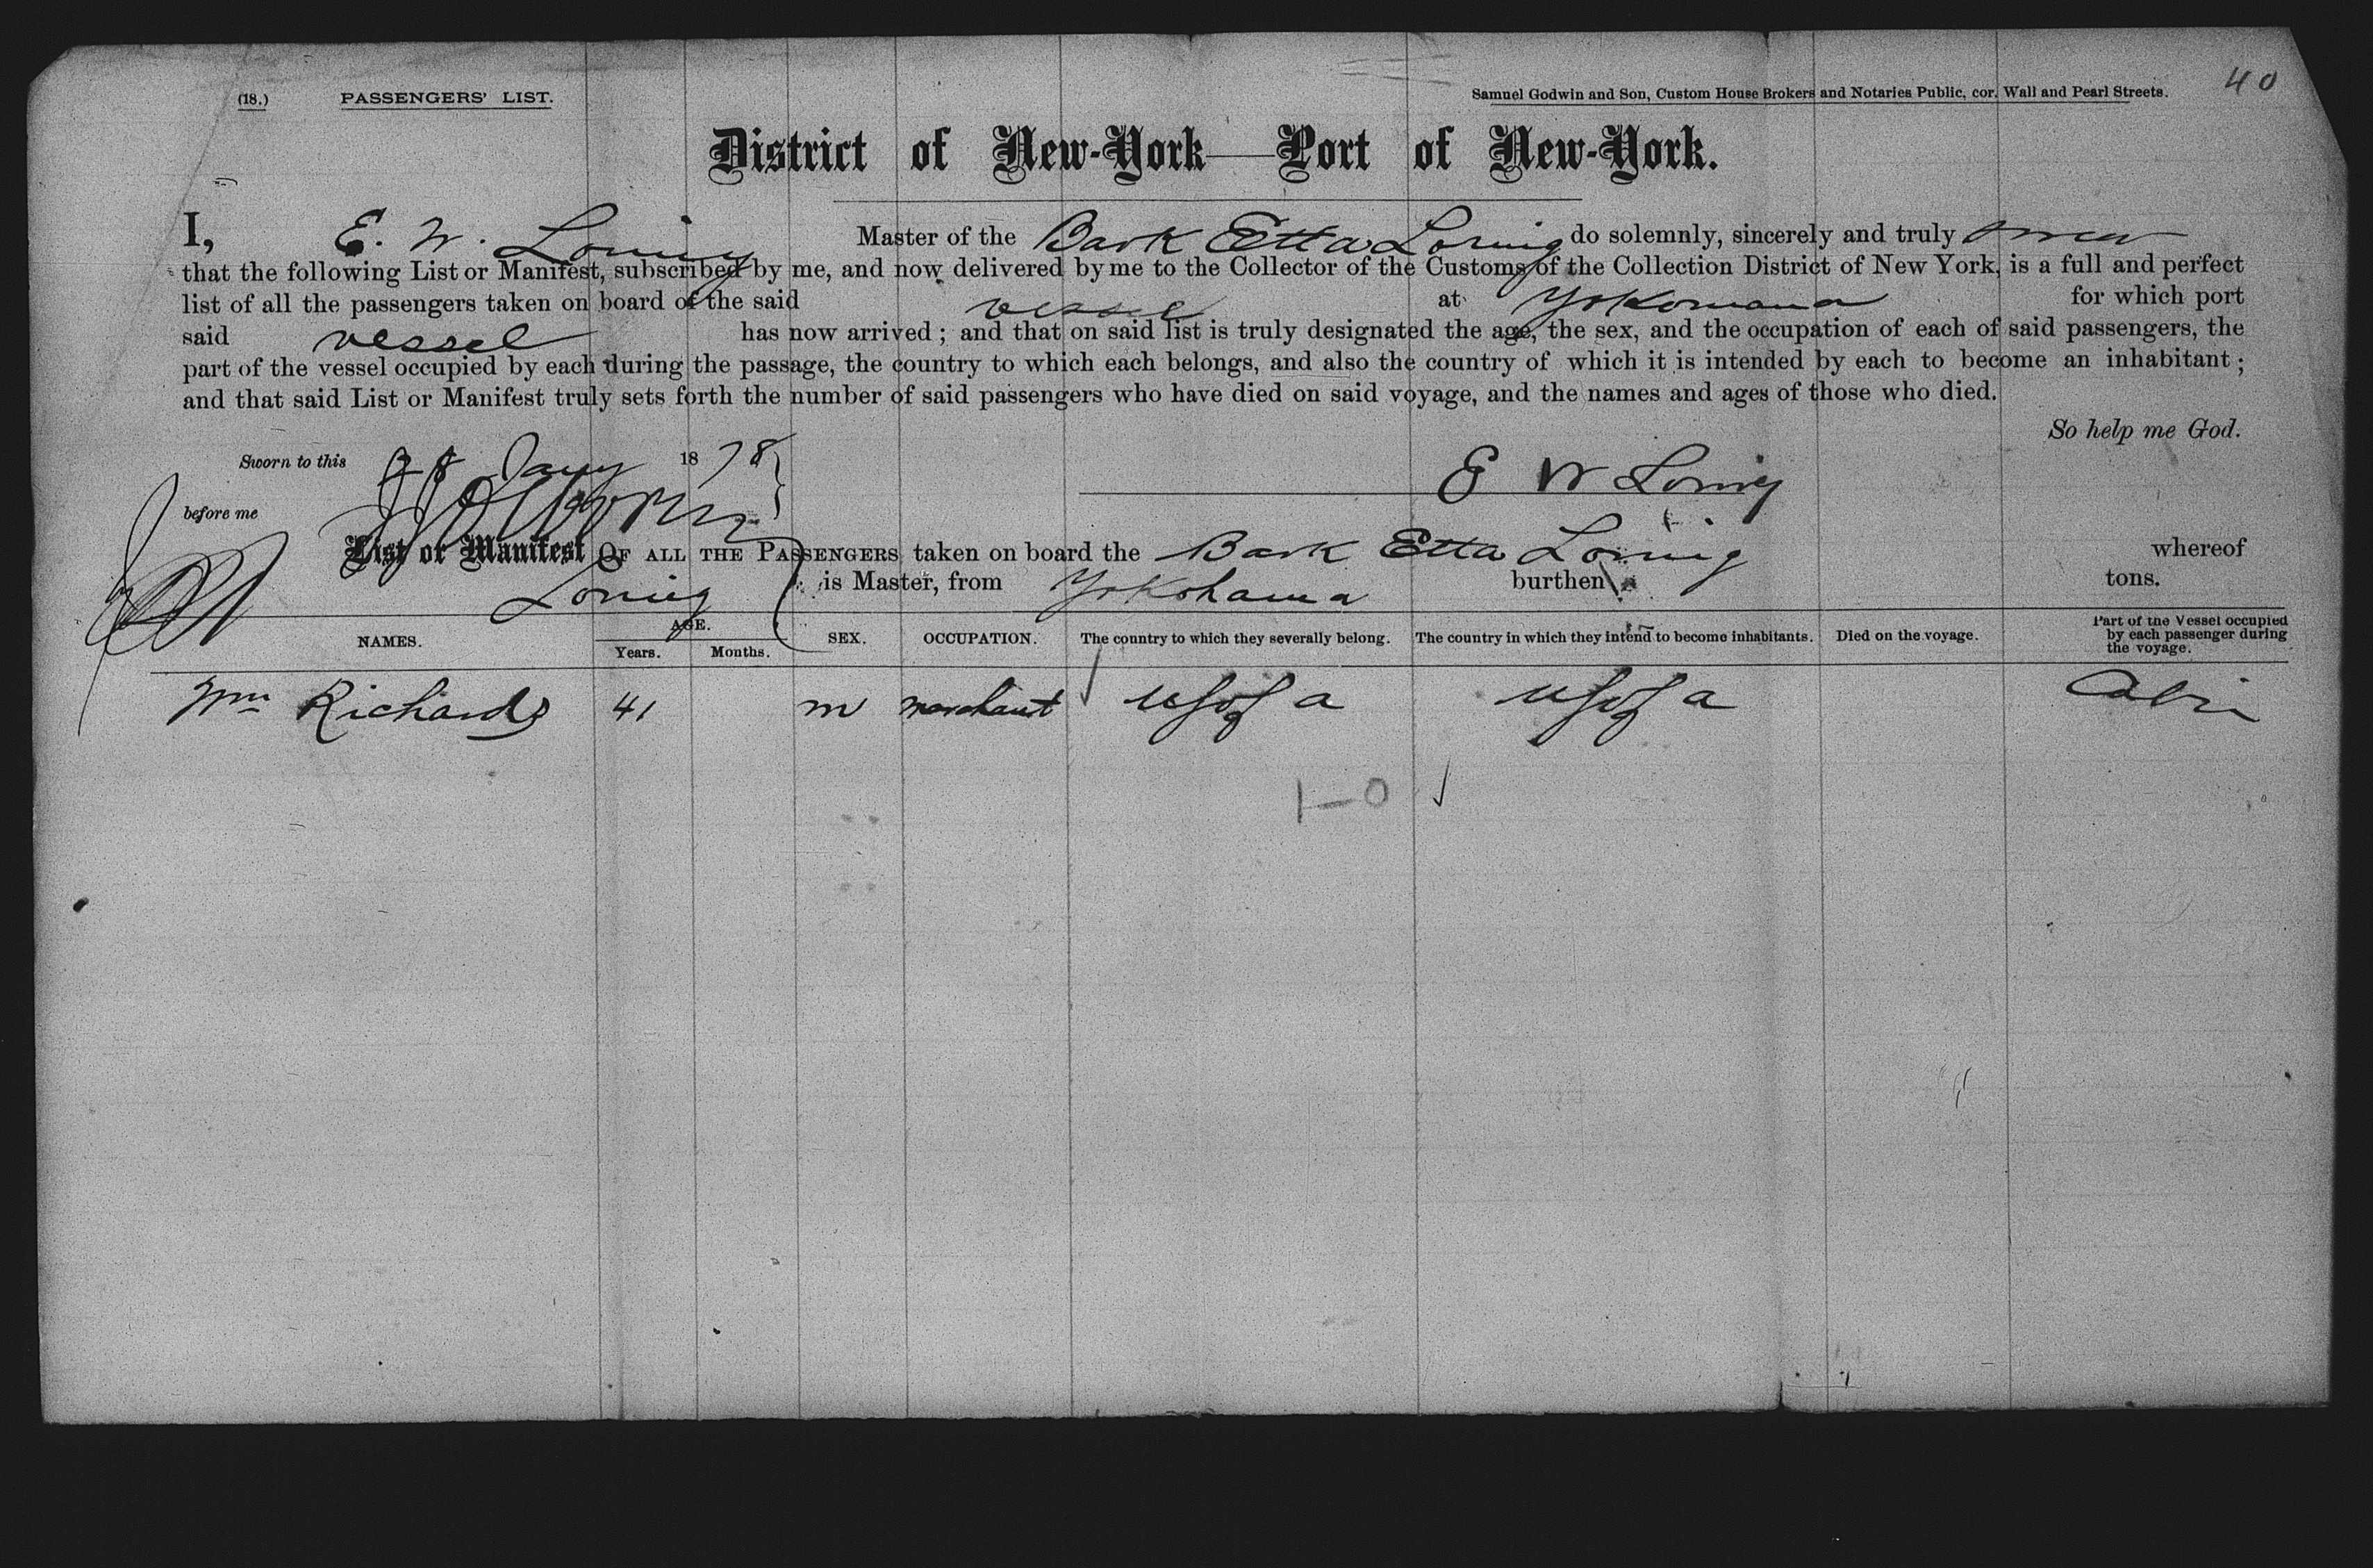 (18.) PASSENGERS' LIST. Samuel Godwin and Son, Custom House Brokers and Notaries Public, cor. Wall and Pearl Streets. 40
District of New-York—Port of New-York.
I, E. W. Loring Master of the Bark Etta Loring do solemnly, sincerely and truly swear
that the following List or Manifest, subscribed by me, and now delivered by me to the Collector of the Customs of the Collection District of New York, is a full and perfect
list of all the passengers taken on board of the said vessel at Yokomama for which port
said vessel has now arrived; and that on said list is truly designated the age, the sex, and the occupation of each of said passengers, the
part of the vessel occupied by each during the passage, the country to which each belongs, and also the country of which it is intended by each to become an inhabitant;
and that said List or Manifest truly sets forth the number of said passengers who have died on said voyage, and the names and ages of those who died.
So help me God.
Sworn to this 28 Jany 1878
E W Loring
before me
List or Manifest OF ALL THE PASSENGERS taken on board the Bark Etta Loring whereof
Loring is Master, from Yokohama burthen tons.
NAMES. AGE. Years. Months. SEX. OCCUPATION. The country to which they severally belong. The country in which they intend to become inhabitants. Died on the voyage. Part of the Vessel occupied by each passenger during the voyage.
Wm Richards 41 m merchant U S of a U S of a Cabin
1-0